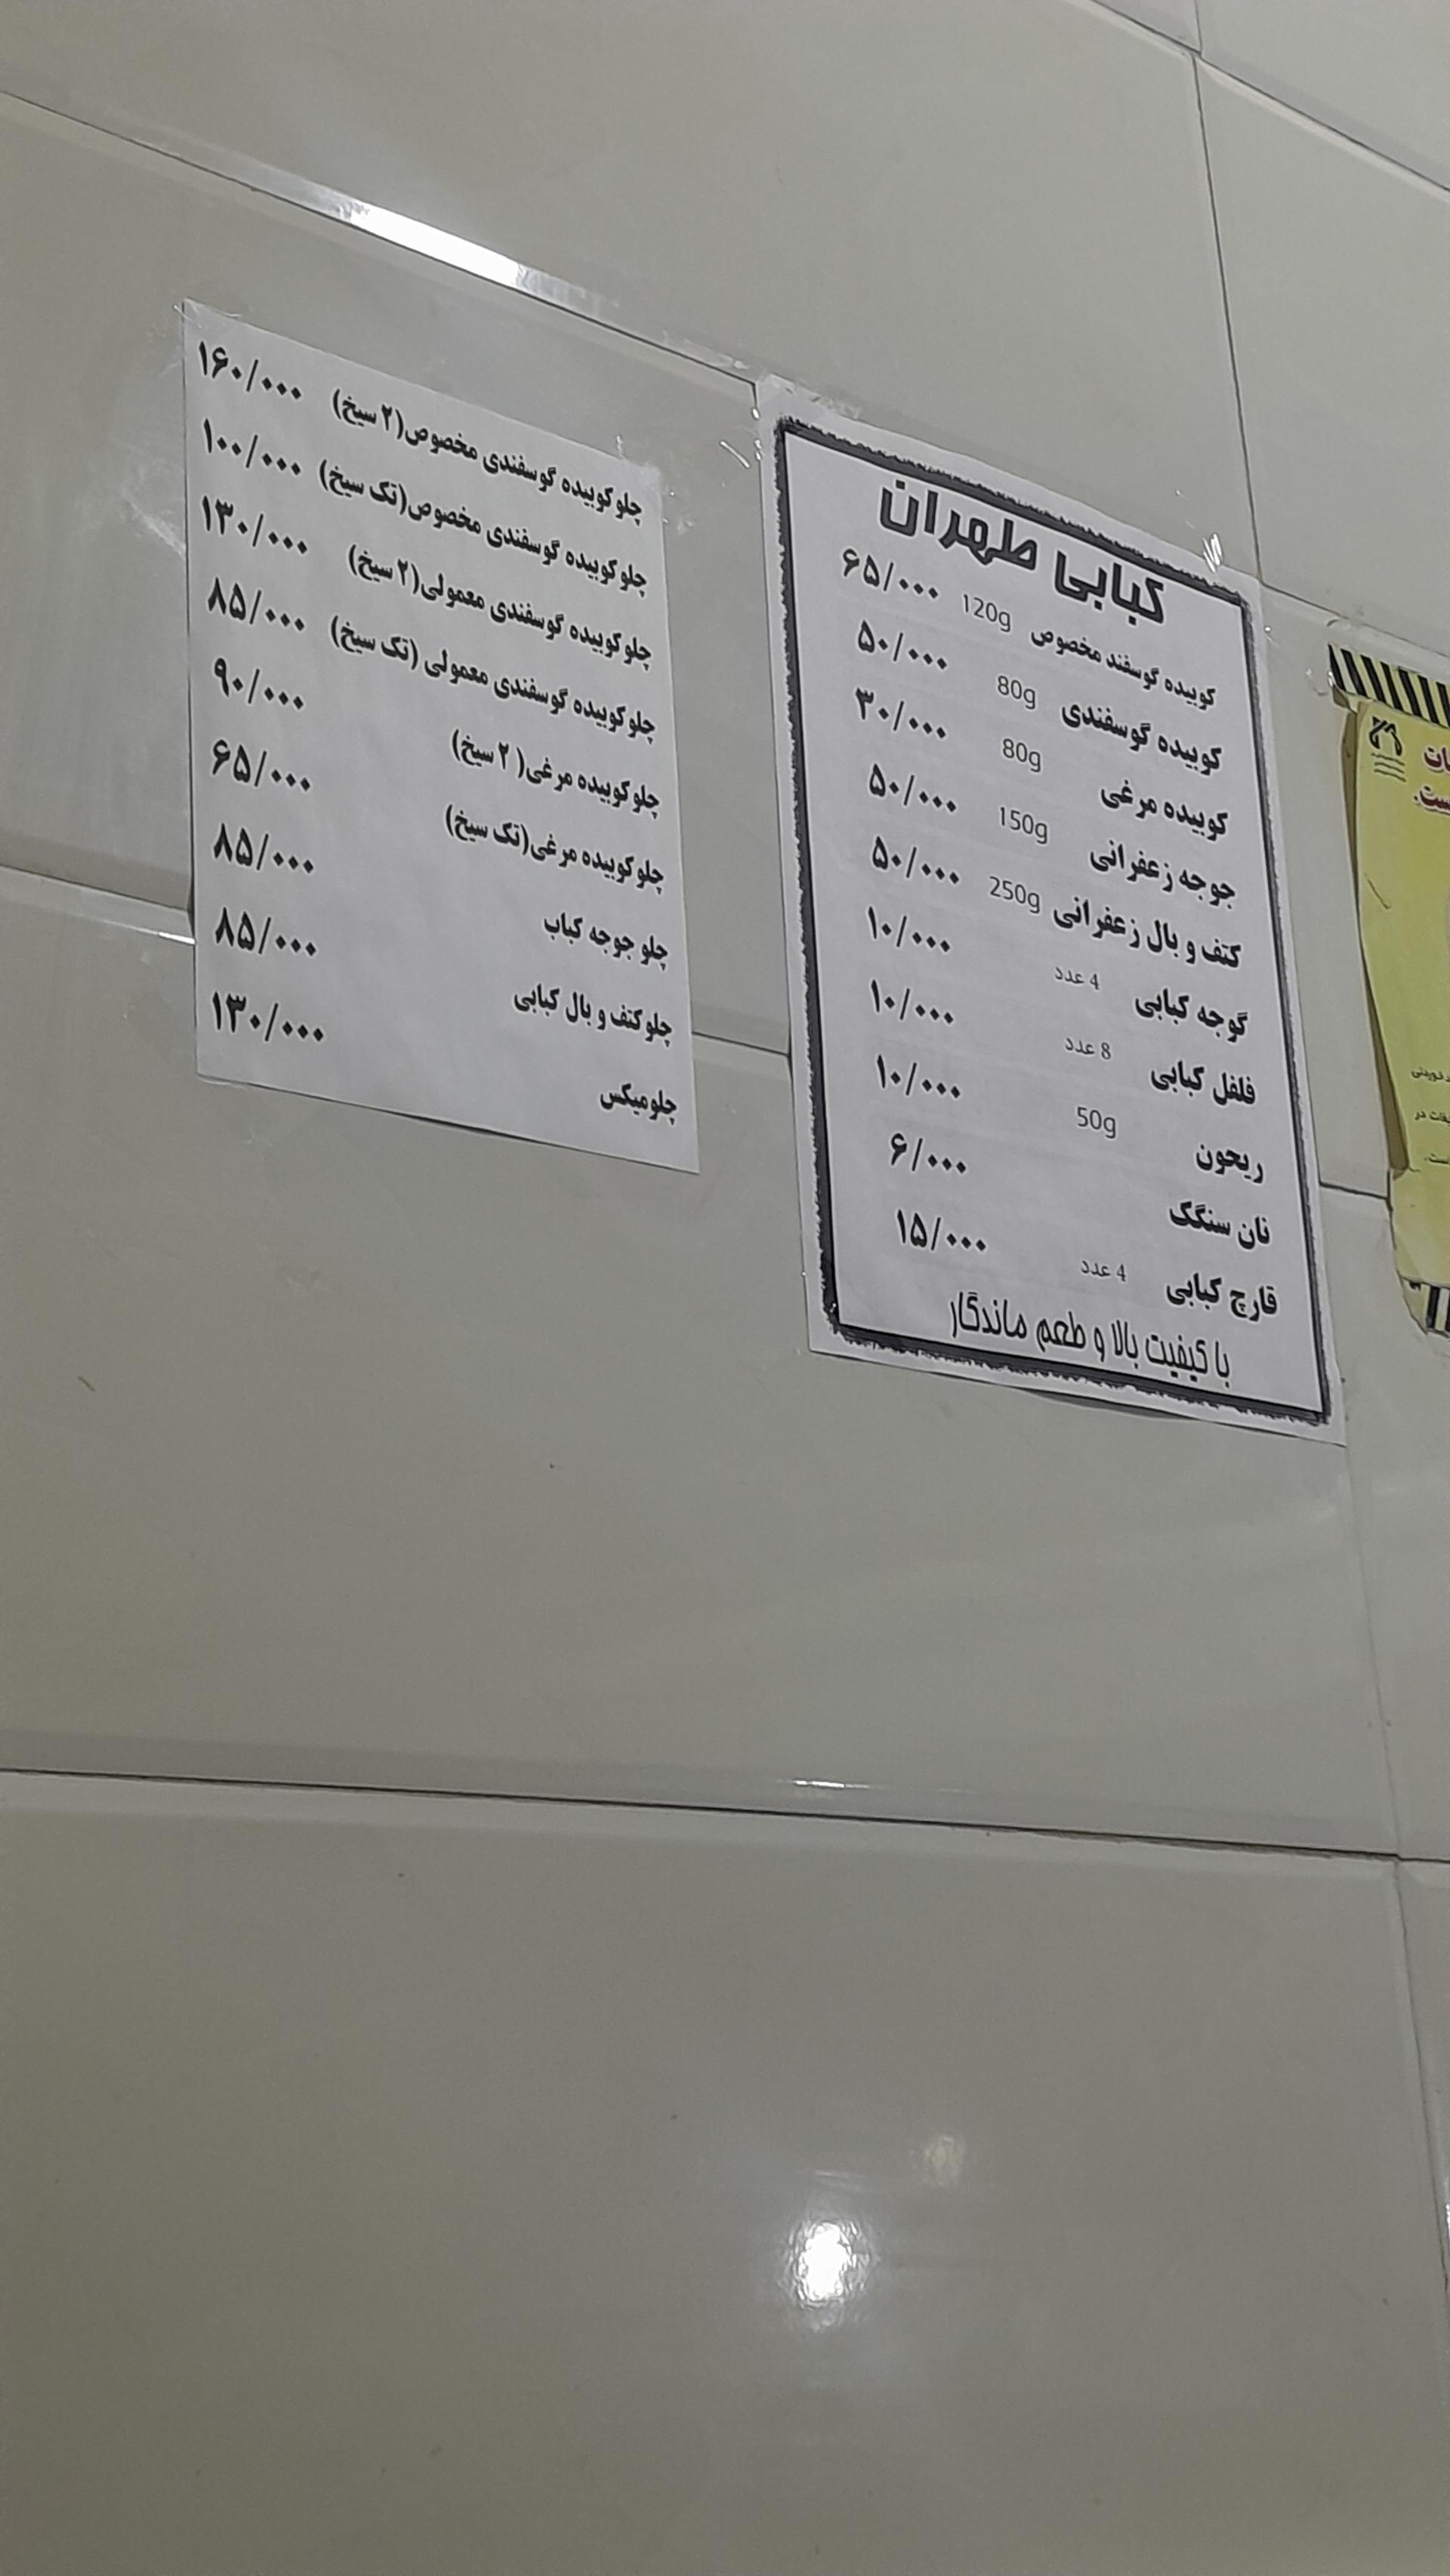 کبابی طهران
کوبیده گوسفند مخصوص 120g ۶۵/۰۰۰
کوبیده گوسفندی 80g ۵۰/۰۰۰
کوبیده مرغی 80g ۳۰/۰۰۰
جوجه زعفرانی 150g ۵۰/۰۰۰
کتف و بال زعفرانی 250g ۵۰/۰۰۰
گوجه کبابی 4 عدد ۱۰/۰۰۰
فلفل کبابی 8 عدد ۱۰/۰۰۰
ریحون 50g ۱۰/۰۰۰
نان سنگک ۶/۰۰۰
قارچ کبابی 4 عدد ۱۵/۰۰۰
با کیفیت بالا و طعم ماندگار
چلو کوبیده گوسفندی مخصوص(۲ سیخ) ۱۶۰/۰۰۰
چلو کوبیده گوسفندی مخصوص(تک سیخ) ۱۰۰/۰۰۰
چلو کوبیده گوسفندی معمولی(۲ سیخ) ۱۳۰/۰۰۰
چلو کوبیده گوسفندی معمولی (تک سیخ) ۸۵/۰۰۰
چلو کوبیده مرغی( ۲ سیخ) ۹۰/۰۰۰
چلو کوبیده مرغی(تک سیخ) ۶۵/۰۰۰
چلو جوجه کباب ۸۵/۰۰۰
چلو کتف و بال کبابی ۸۵/۰۰۰
چلو میکس ۱۳۰/۰۰۰